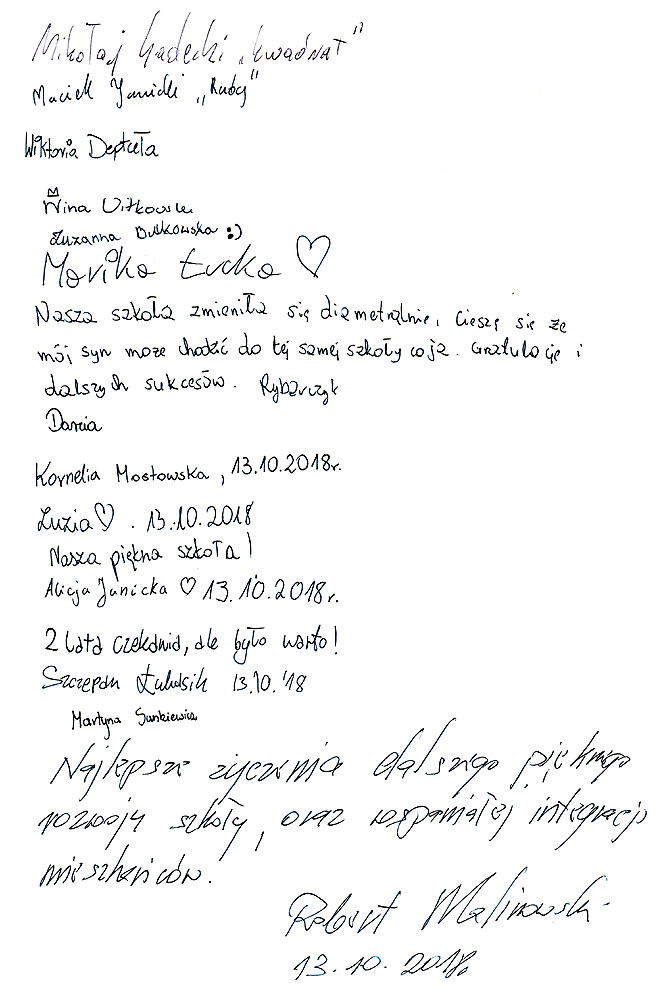 Mikołaj Gadecki „Kwadrat"
Maciek Janicki „Ruby"
Wiktoria Deptuła
Nina Witkowska
Zuzanna Dutkowska :)
Monika Łucka ♡
Nasza szkoła zmieniła się diametralnie, cieszę się że
mój syn może chodzić do tej samej szkoły co ja. Gratulacje i
dalszych sukcesów. Rybarczyk
Daria
Kornelia Mostowska, 13.10.2018r.
Luzia ♡. 13.10.2018
Nasza piękna szkoła!
Alicja Janicka ♡ 13.10.2018r.
2 lata czekania, ale było warto!
Szczepan Łukasik 13.10.'18
Martyna Sankiewicz
Najlepsze życzenia dalszego pięknego
rozwoju szkoły, oraz wspaniałej integracji
mieszkańców.
Robert Malinowski
13.10.2018.